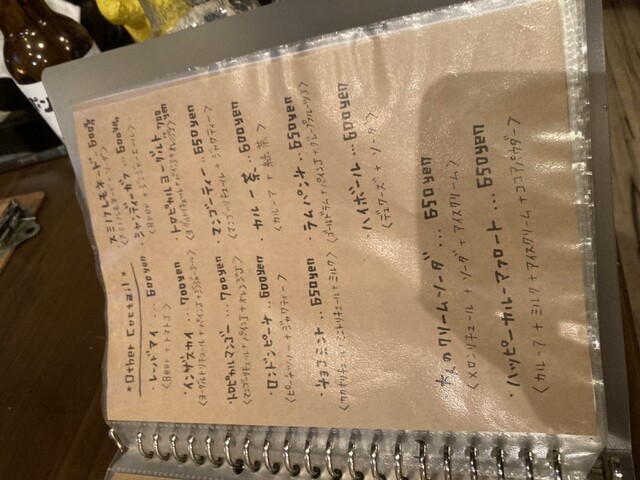 *Other Coctail*
・レッドアイ … 600yen
<Beer + トマトJ>
・インザスカイ … 700yen
<ヨーグルトリキュール + パインJ + ジンジャーエール>
・トロピカルマンゴー … 700yen
<マンゴーリキュール + パインJ + オレンジJ>
・ロンドンピーチ … 600yen
<ピーチツリー + ジャクティー>
・チョコミント … 650yen
<カカオリキュール + ミントリキュール + ミルク>
スミノフレモネード … 600yen
・シャンディーガフ 600yen
<Beer + ジンジャーエール>
・トロピカルヨーグルト 700yen
<ヨーグルトリキュール + パインJ + オレンジJ>
・マンゴーティー … 650yen
<マンゴーリキュール + ジャクティー>
・カルー茶 … 600yen
<カルーア + 緑茶>
・ラムパンチ … 650yen
<ゴールドラム + パインJ + グレープフルーツJ>
・ハイボール … 600yen
<デュワーズ + ソーダ>
・大人のクリームソーダ … 650yen
<メロンリキュール + ソーダ + アイスクリーム>
・ハッピーカルーアフロート … 650yen
<カルーア + ミルク + アイスクリーム + ココアパウダー>